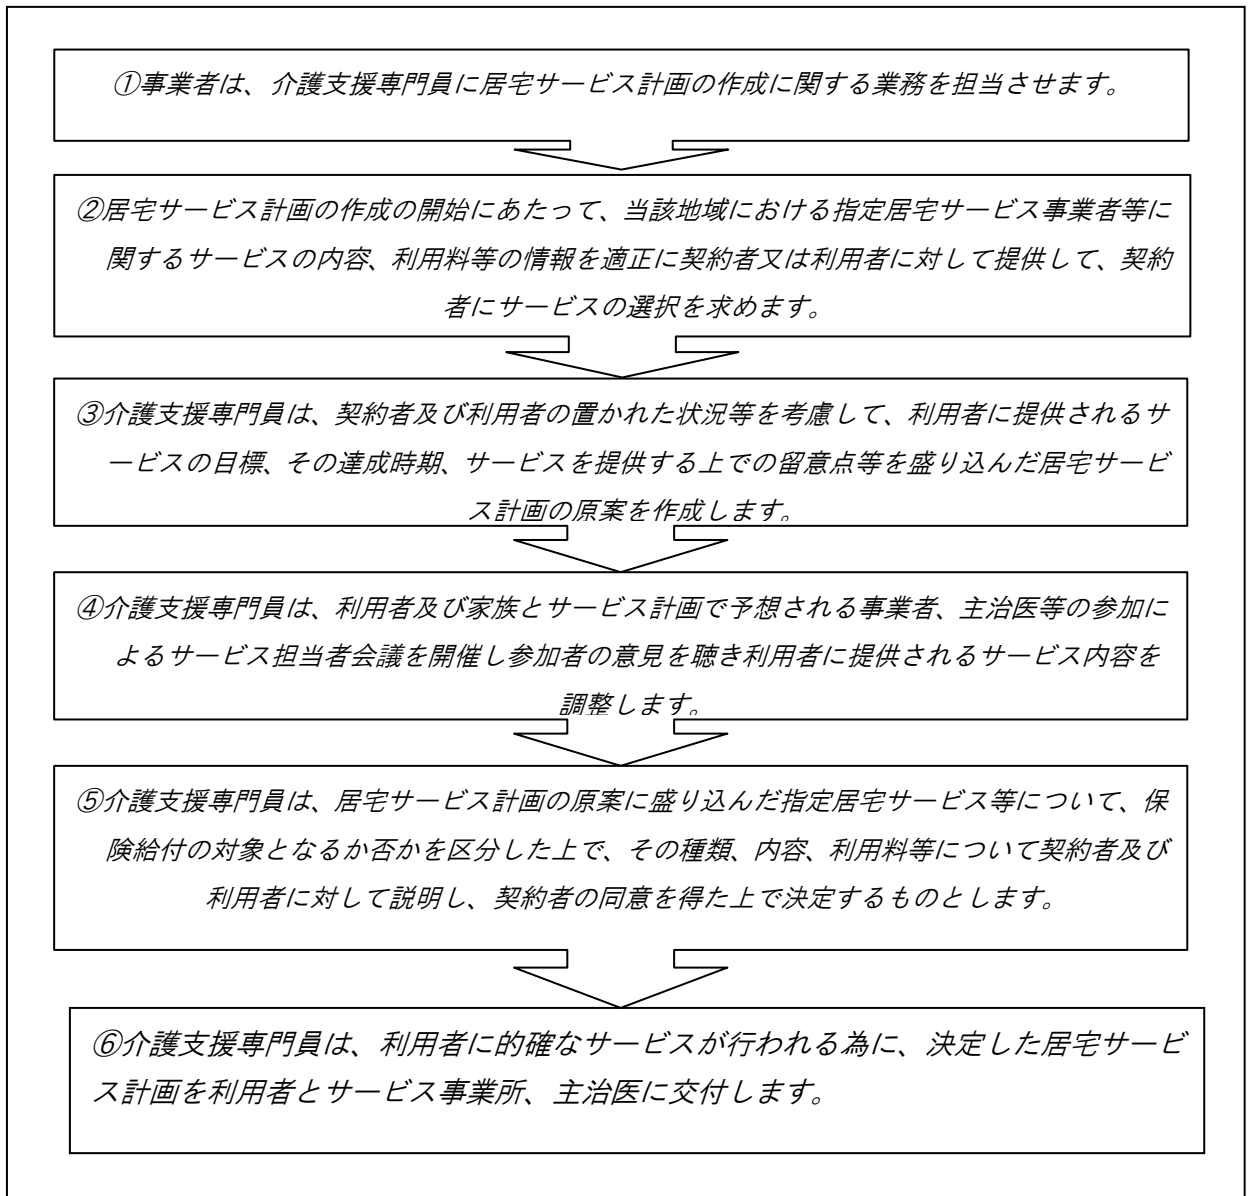 ①事業者は、介護支援専門員に居宅サービス計画の作成に関する業務を担当させます。
②居宅サービス計画の作成の開始にあたって、当該地域における指定居宅サービス事業者等に
関するサービスの内容、利用料等の情報を適正に契約者又は利用者に対して提供して、契約
者にサービスの選択を求めます。
③介護支援専門員は、契約者及び利用者の置かれた状況等を考慮して、利用者に提供されるサ
ービスの目標、その達成時期、サービスを提供する上での留意点等を盛り込んだ居宅サービ
ス計画の原案を作成します。
④介護支援専門員は、利用者及び家族とサービス計画で予想される事業者、主治医等の参加に
よるサービス担当者会議を開催し参加者の意見を聴き利用者に提供されるサービス内容を
調整します。
⑤介護支援専門員は、居宅サービス計画の原案に盛り込んだ指定居宅サービス等について、保
険給付の対象となるか否かを区分した上で、その種類、内容、利用料等について契約者及び
利用者に対して説明し、契約者の同意を得た上で決定するものとします。
⑥介護支援専門員は、利用者に的確なサービスが行われる為に、決定した居宅サービ
ス計画を利用者とサービス事業所、主治医に交付します。